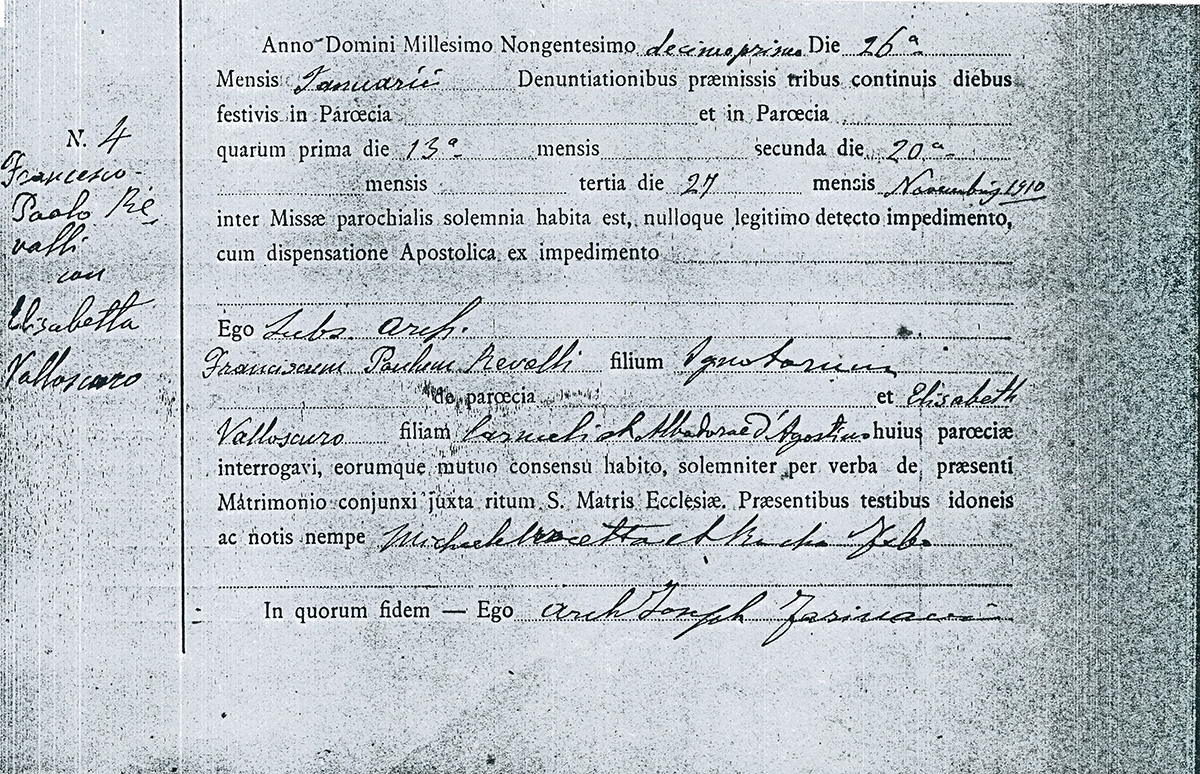 Anno Domini Millesimo Nongentesimo decimoprimo Die 26ª
Mensis Januarii Denuntiationibus præmissis tribus continuis diebus
festivis in Parœcia et in Parœcia
quarum prima die 13ª mensis secunda die 20ª
mensis tertia die 27 mensis Novembris 1910
inter Missæ parochialis solemnia habita est, nulloque legitimo detecto impedimento,
cum dispensatione Apostolica ex impedimento
Ego Subs. Arch.
Franciscum Paulum Revalli filium Ignotorum
de parœcia et Elisabeth
Valloscuro filiam Carmeli et d'Agostino huius parœciæ
interrogavi, eorumque mutuo consensu habito, solemniter per verba de præsenti
Matrimonio conjunxi juxta ritum S. Matris Ecclesiæ. Præsentibus testibus idoneis
ac notis nempe Michaele et
In quorum fidem — Ego Arch Joseph Farinacci
N. 4
Francesco
Paolo Re
valli
con
Elisabetta
Valloscuro